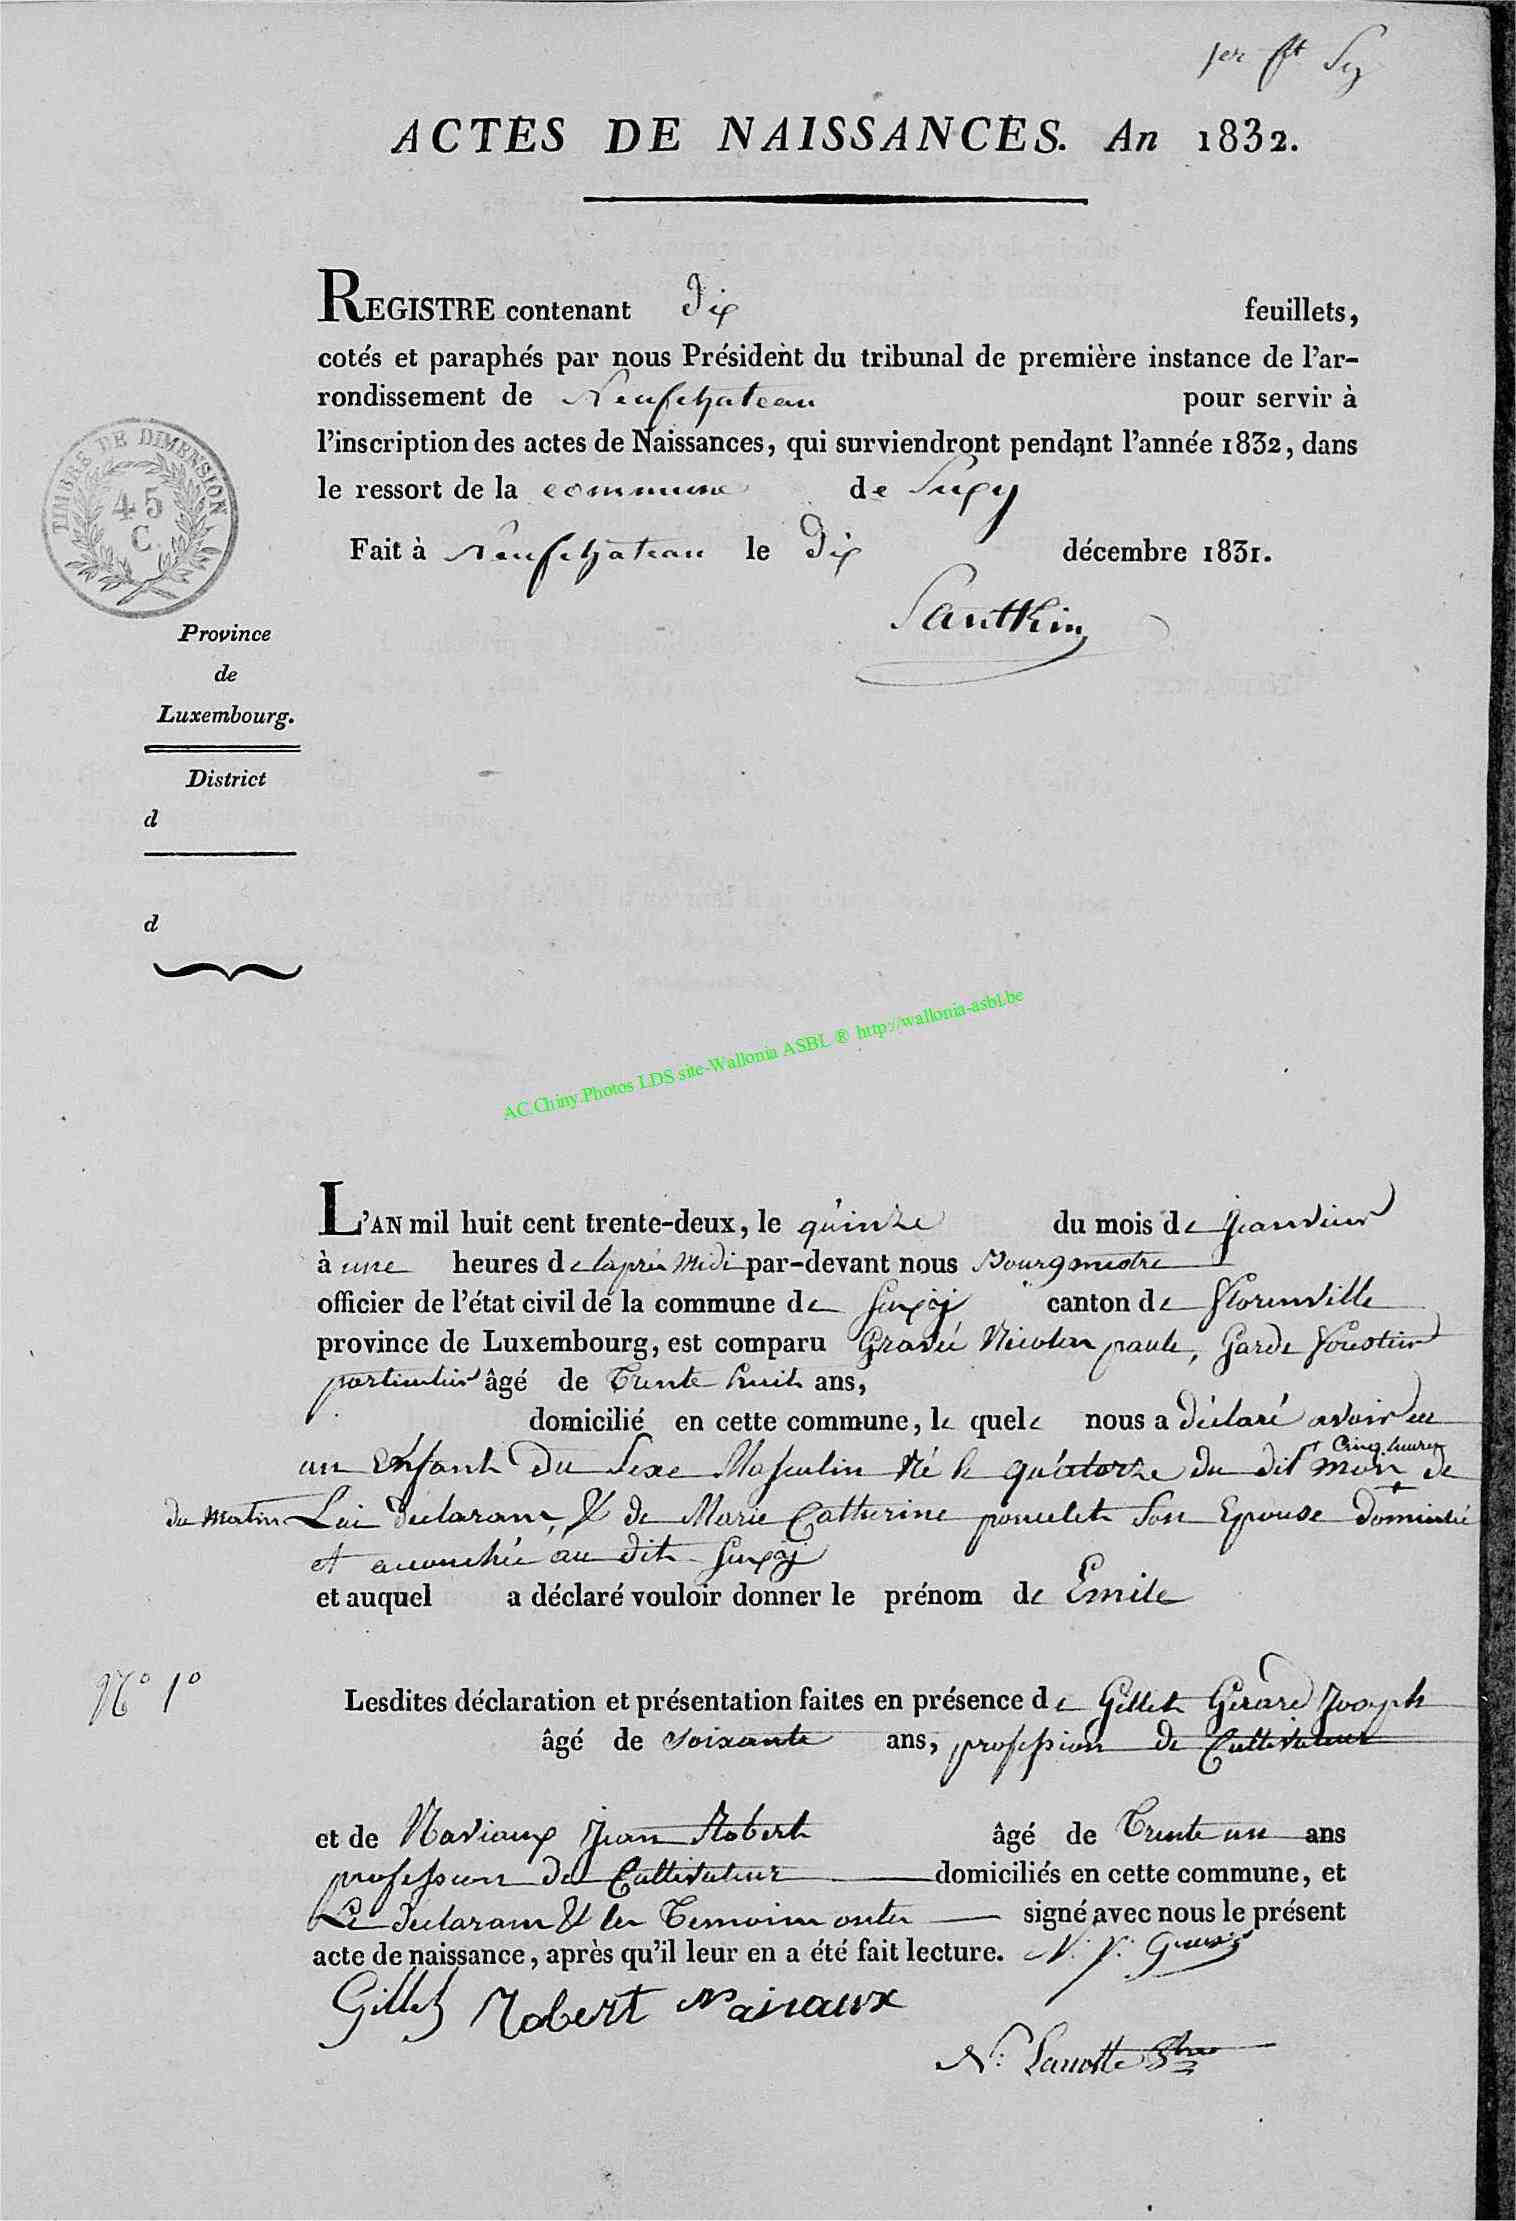 1er ft
ACTES DE NAISSANCES. An 1832.
REGISTRE contenant Dix feuillets,
cotés et paraphés par nous Président du tribunal de première instance de l'ar-
rondissement de Neufchateau pour servir à
l'inscription des actes de Naissances, qui surviendront pendant l'année 1832, dans
le ressort de la commune de Suxy
Fait à Neufchateau le Dix décembre 1831.
Santkin
TIMBRE DE DIMENSION
45
C.
Province
de
Luxembourg.
District
d
d
AC.Chiny.Photos LDS site-Wallonia ASBL ® http://wallonia-asbl.be
L'AN mil huit cent trente-deux, le quinze du mois de Janvier
à une heures de laprès Midi par-devant nous Bourgmestre
officier de l'état civil de la commune de Suxÿ canton de Florenville
province de Luxembourg, est comparu Gravée Nicolas paule, Garde Forestier
particulier âgé de Trente huit ans,
domicilié en cette commune, le quele nous a déclaré avoir eu
un Enfant du Sexe Masculin Né le quatorze du dit mois + de
+ Cinq heures
du Matin
Lui declarant, & de Marie Catherine poncelet Son Epouse Domicilié
et accouchée au dit Suxÿ
et auquel a déclaré vouloir donner le prénom de Emile
N° 1°
Lesdites déclaration et présentation faites en présence de Gillet Gérard Joseph
âgé de soixante ans, profession de Cultivateur
et de Naviaux Jean Robert âgé de Trente un ans
profession de Cultivateur domiciliés en cette commune, et
Le declarant & les Temoins ontes signé avec nous le présent
acte de naissance, après qu'il leur en a été fait lecture. N. p.
Gillet Robert Naviaux
N.